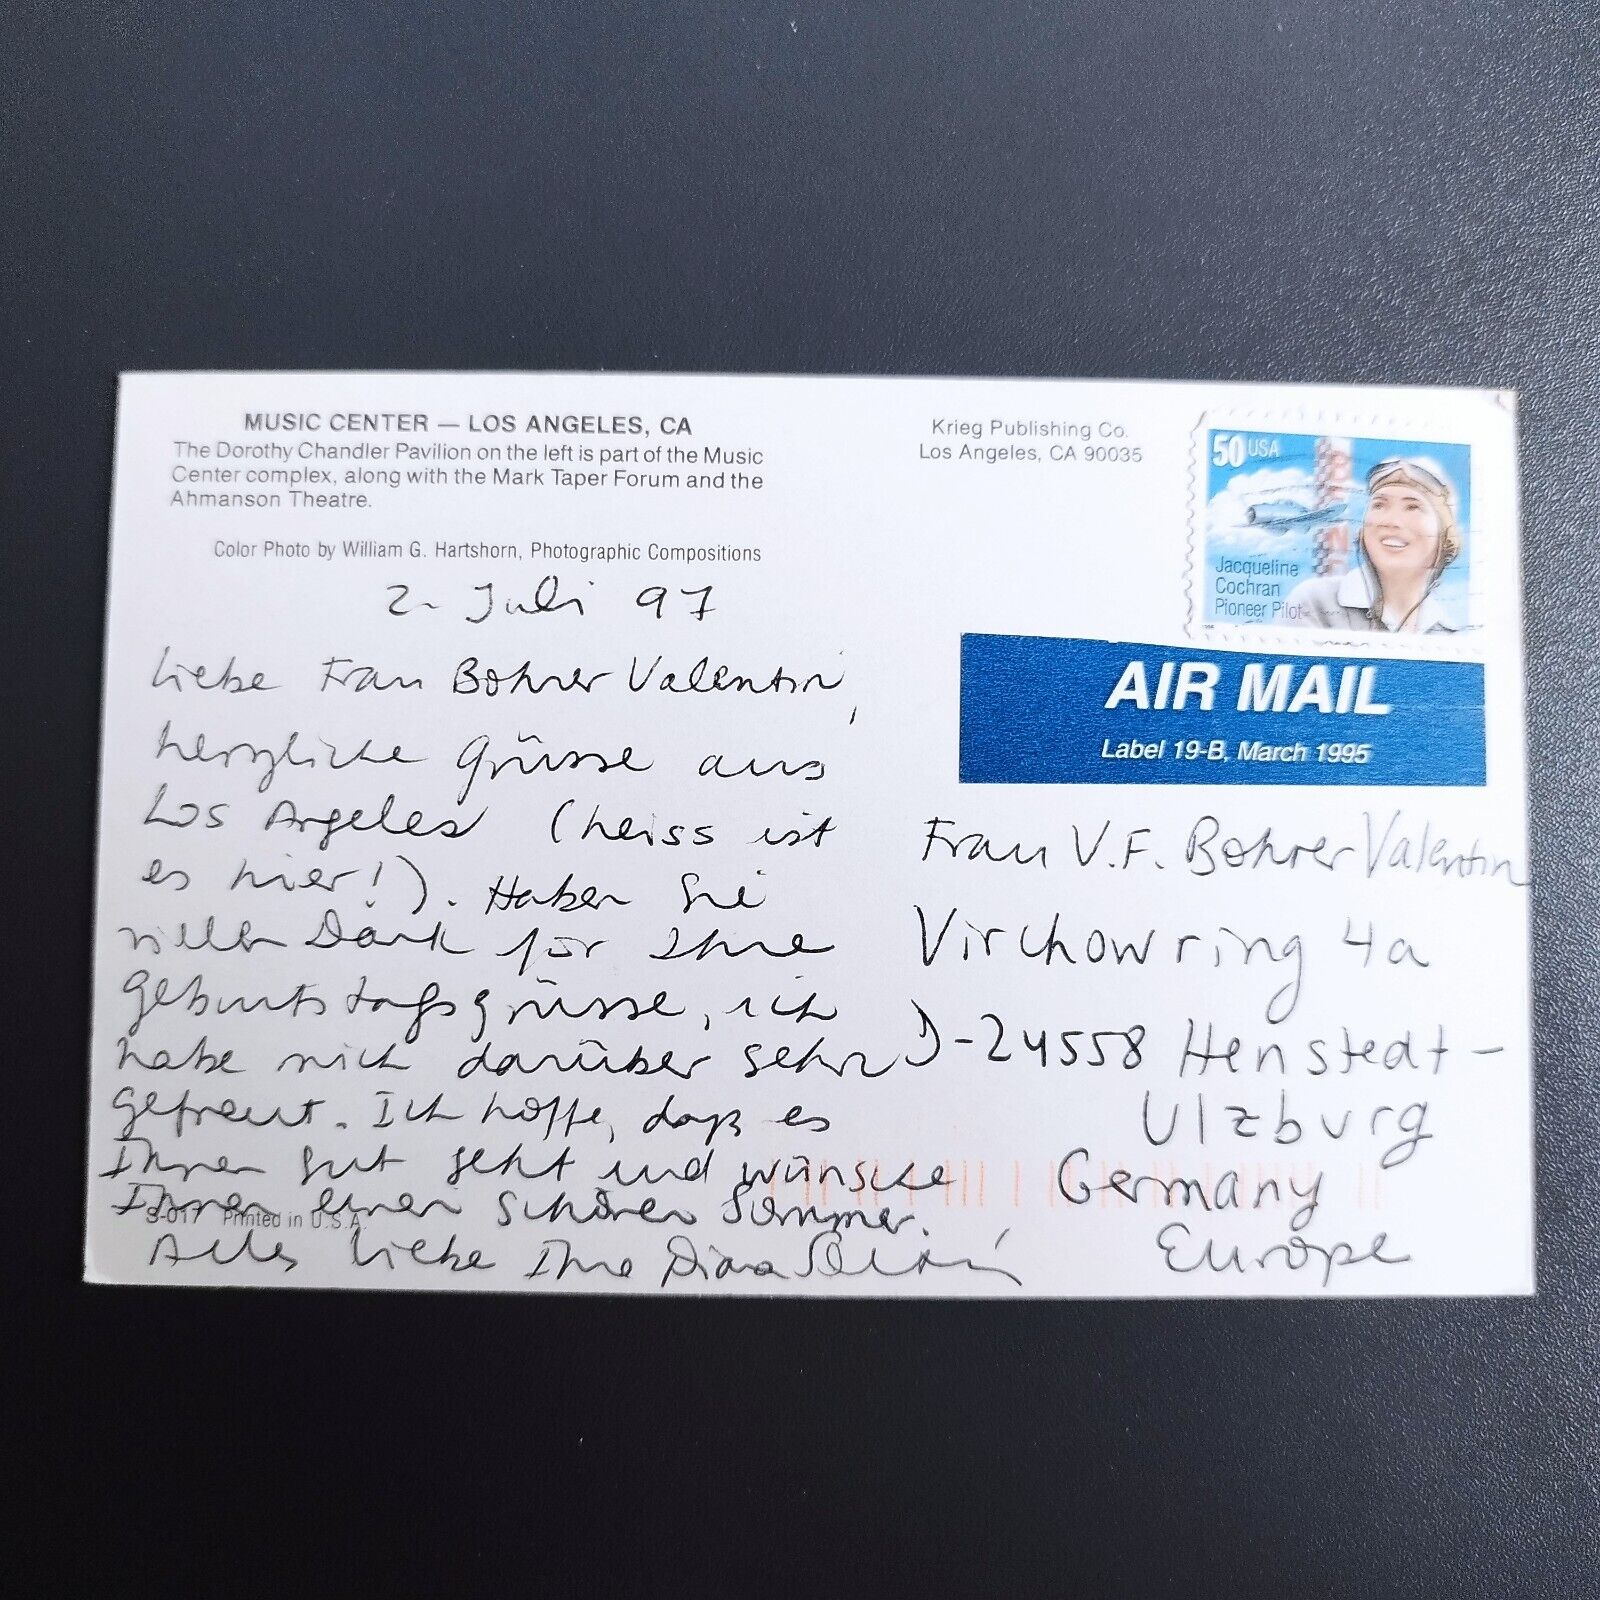 MUSIC CENTER — LOS ANGELES, CA
The Dorothy Chandler Pavilion on the left is part of the Music
Center complex, along with the Mark Taper Forum and the
Ahmanson Theatre.
Color Photo by William G. Hartshorn, Photographic Compositions
2. Juli 97
Liebe Frau Bohrer Valentin,
herzliche Grüsse aus
Los Angeles (heiss ist
es hier!). Haben Sie
vielen Dank für Ihre
Geburtstagsgrüsse, ich
habe mich darüber sehr
gefreut. Ich hoffe, daß es
Ihnen gut geht und wünsche
Ihnen einen schönen Sommer.
S-017 Printed in U.S.A.
Alles Liebe Ihre Diana
Krieg Publishing Co.
Los Angeles, CA 90035
50 USA
Jacqueline
Cochran
Pioneer Pilot
AIR MAIL
Label 19-B, March 1995
Frau V.F. Bohrer Valentin
Virchowring 4a
D-24558 Henstedt-
Ulzburg
Germany
Europe